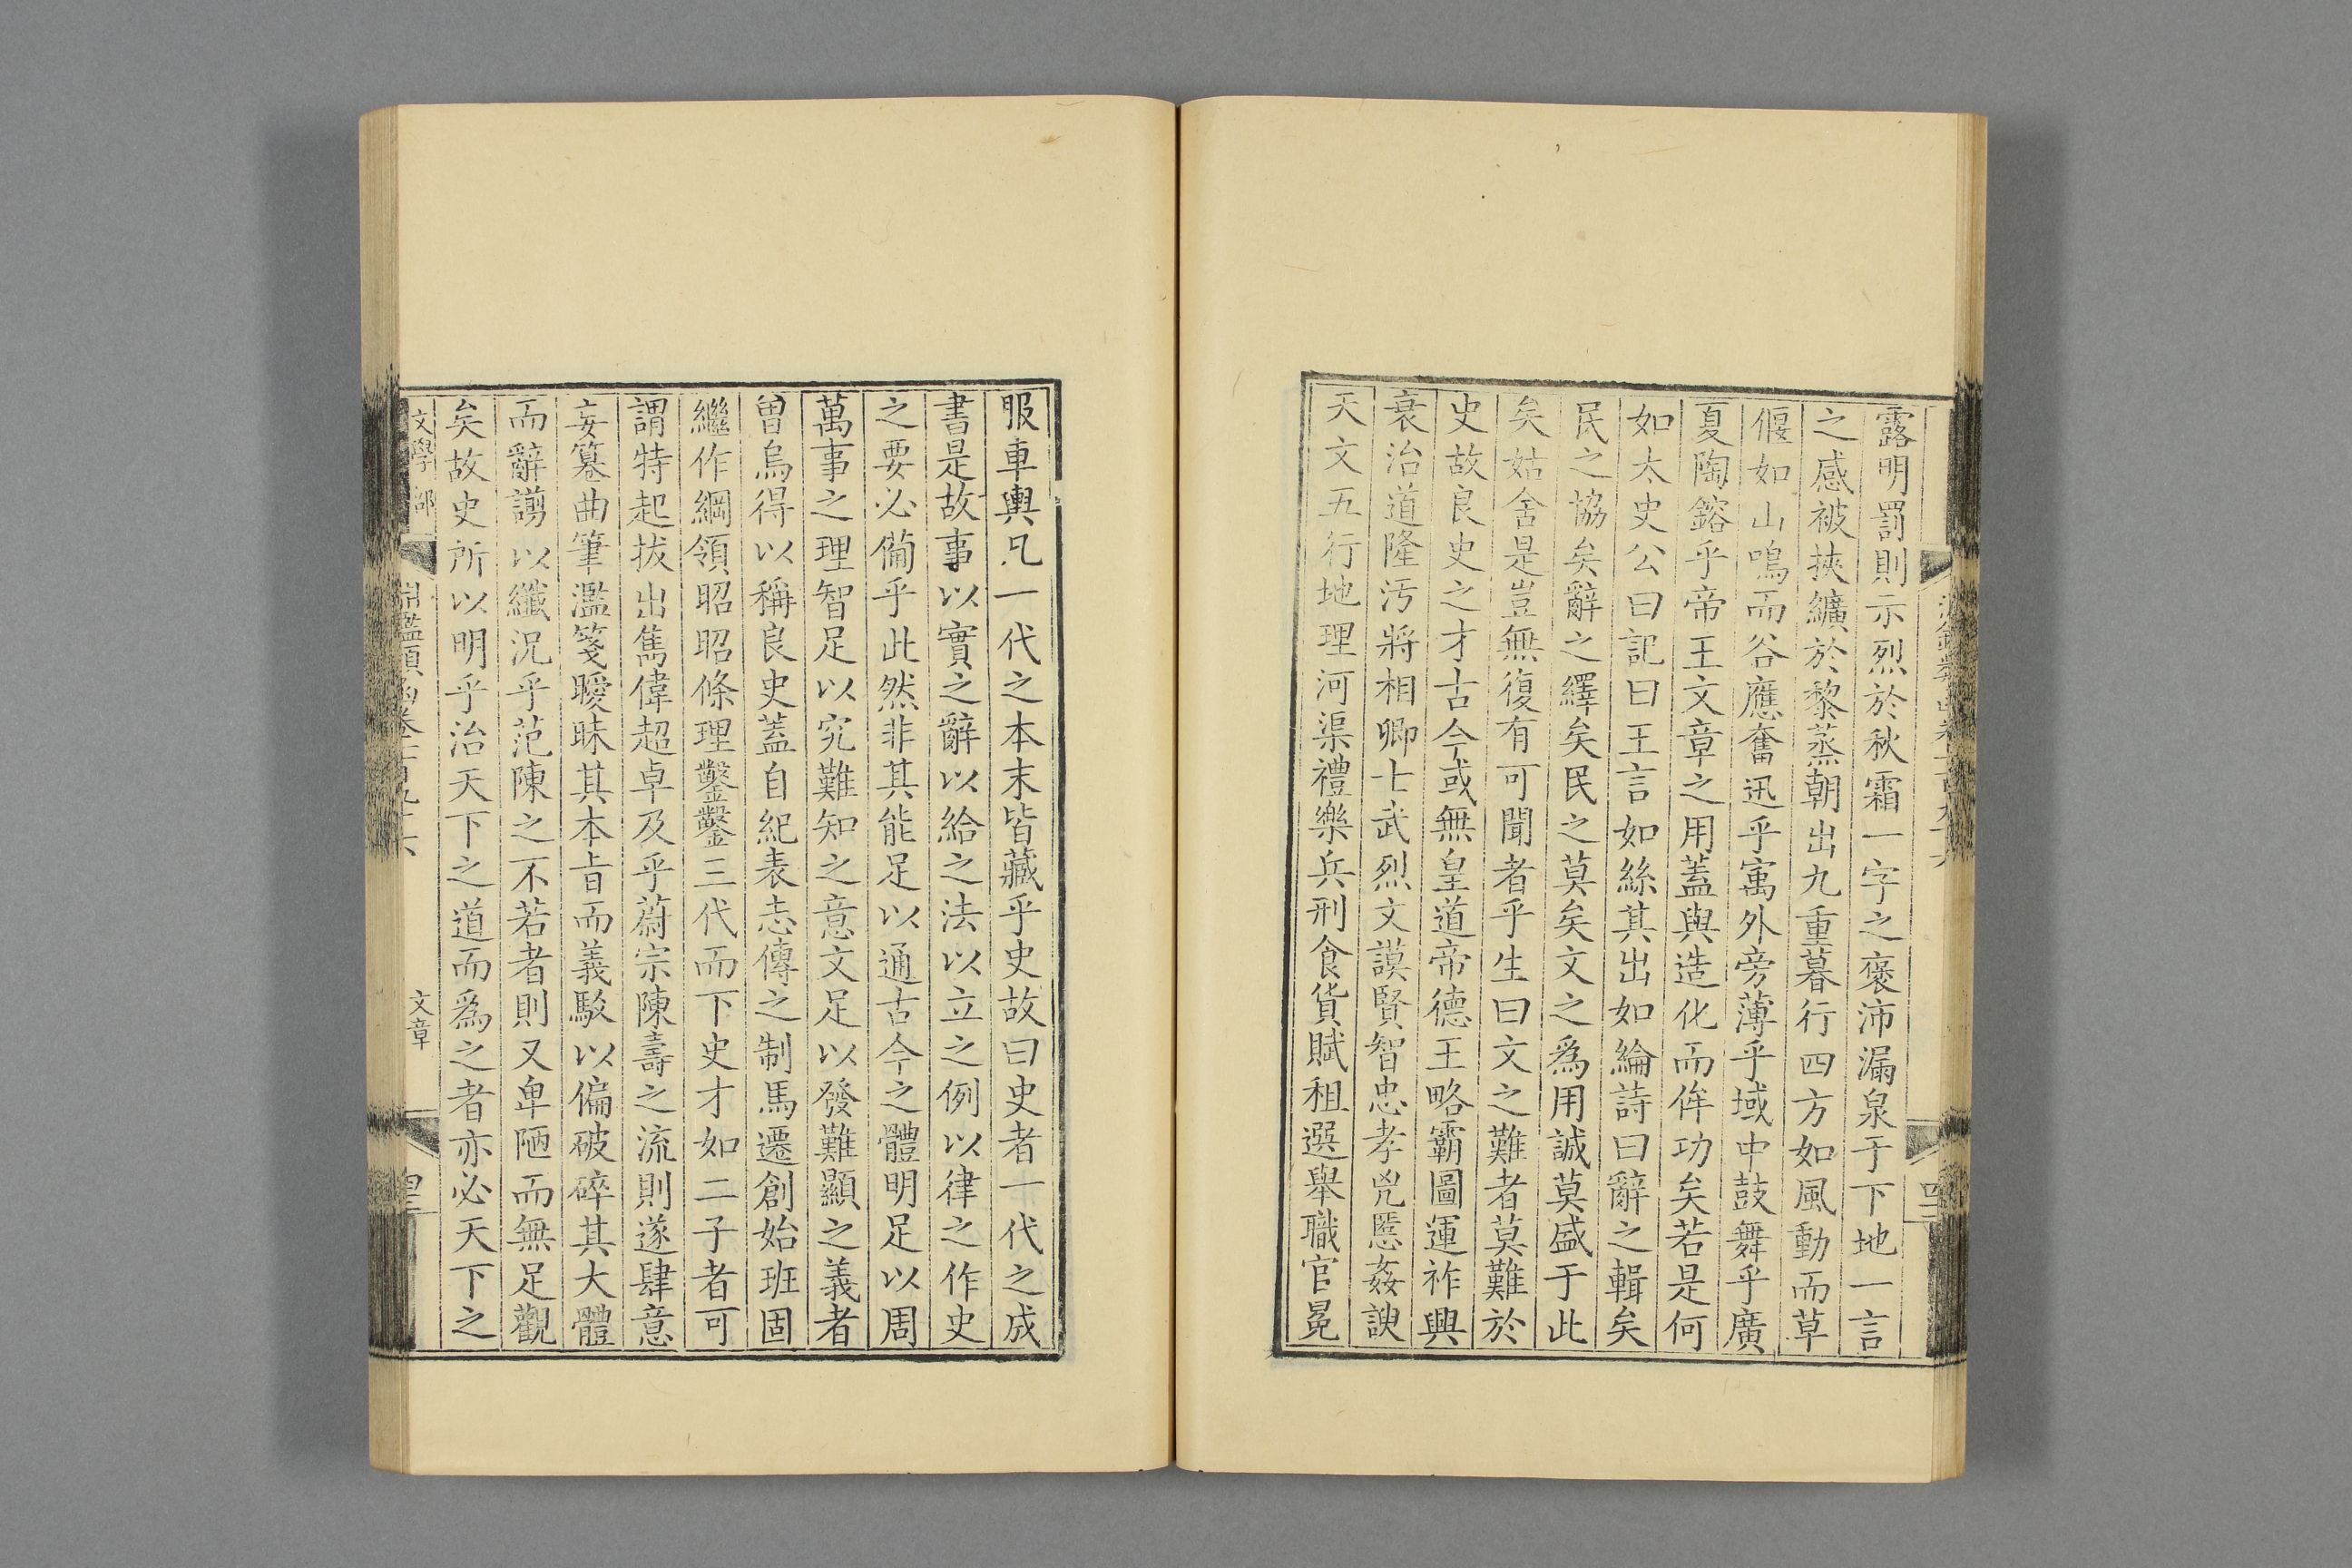 露明罰則示烈於秋霜一字之褒沛漏泉于下地一言
之感被挾纊於黎蒸朝出九重暮行四方如風動而草
偃如山鳴而谷應奮迅乎寓外旁薄乎域中鼓舞乎廣
夏陶鎔乎帝王文章之用蓋與造化而侔功矣若是何
如太史公曰記曰王言如絲其出如綸詩曰辭之輯矣
民之協矣辭之繹矣民之莫矣文之爲用誠莫盛于此
矣姑舍是豈無復有可聞者乎生曰文之難者莫難於
史故良史之才古今或無皇道帝德王略霸圖運祚興
衰治道隆汚將相卿士武烈文謨賢智忠孝兇慝姦諛
天文五行地理河渠禮樂兵刑食貨賦租選舉職官冕
服車輿凡一代之本末皆藏乎史故曰史者一代之成
書是故事以實之辭以給之法以立之例以律之作史
之要必備乎此然非其能足以通古今之體明足以周
萬事之理智足以究難知之意文足以發難顯之義者
曾烏得以稱良史蓋自紀表志傳之制馬遷創始班固
繼作綱領昭昭條理鑿鑿三代而下史才如二子者可
謂特起拔出雋偉超卓及乎蔚宗陳壽之流則遂肆意
妄纂曲筆濫箋曖昧其本旨而義駁以偏破碎其大體
而辭譾以纖況乎范陳之不若者則又卑陋而無足觀
矣故史所以明乎治天下之道而爲之者亦必天下之
文學部 淵鑑類函卷一百九十六 文章